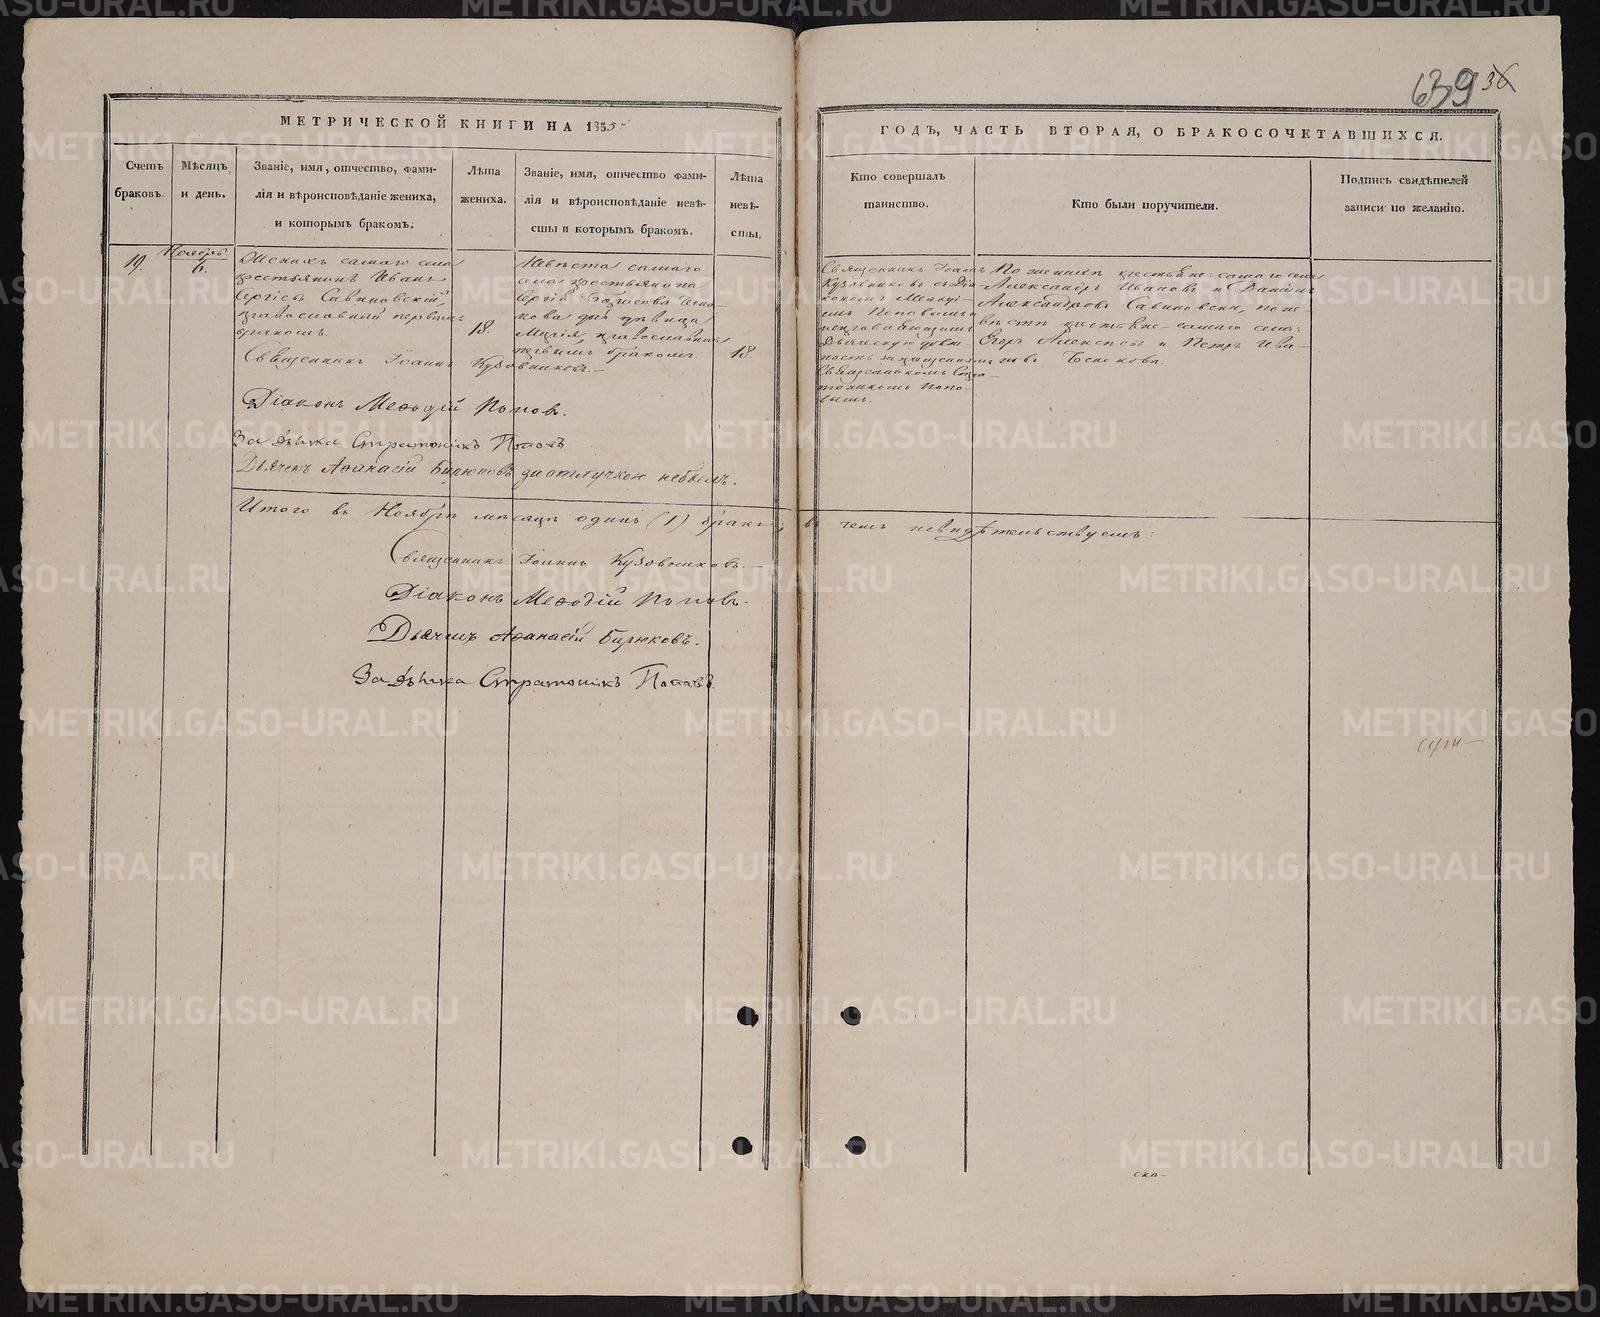 639 36
МЕТРИЧЕСКОЙ КНИГИ НА 1855
ГОДЪ, ЧАСТЬ ВТОРАЯ, О БРАКОСОЧЕТАВШИХСЯ.
Счетъ браковъ.
Мѣсяцъ и день.
Званіе, имя, отчество, фами-
лія и вѣроисповѣданіе жениха,
и которымъ бракомъ.
Лѣта
жениха.
Званіе, имя, отчество фами-
лія и вѣроисповѣданіе невѣ-
сты и которымъ бракомъ.
Лѣта
невѣ-
сты.
Кто совершалъ
таинство.
Кто были поручители.
Подпись свидѣтелей
записи по желанію.
19.
Ноябрь
6.
Женихъ самаго села
крестьянинъ Иванъ
Сергіевъ Савиновскій,
православный первымъ
бракомъ.
18.
Невѣста самаго
села крестьянина
Сергія Борисова
дѣвица
Марія, православная
первымъ бракомъ
18.
Священникъ Іоаннъ
Кузовниковъ съ Діа-
кономъ Меѳоді-
емъ Поповымъ и
исправляющимъ
Дьяческую долж-
ность
Священникомъ Стра-
тоникомъ Попо-
вымъ.
По женихѣ крестьяне: самаго села
Александръ Ивановъ и Даніилъ
Александровъ Савиновски, по не-
вѣстѣ крестьяне самаго села:
Егоръ Алексѣевъ и Петръ Ива-
новъ
Священникъ Іоаннъ Кузовниковъ.
Діаконъ Меѳодій Поповъ.
За дьячка Стратоникъ Поповъ
Дьячекъ Аѳанасій Бирюковъ за отлучкою небылъ.
Итого въ Ноябрѣ мѣсяцѣ одинъ (1) бракъ; въ чемъ и свидѣтельствуемъ:
Священникъ Іоаннъ Кузовниковъ.
Діаконъ Меѳодій Поповъ.
Дьячекъ Аѳанасій Бирюковъ.
За дьячка Стратоникъ Поповъ
METRIKI.GASO-URAL.RU